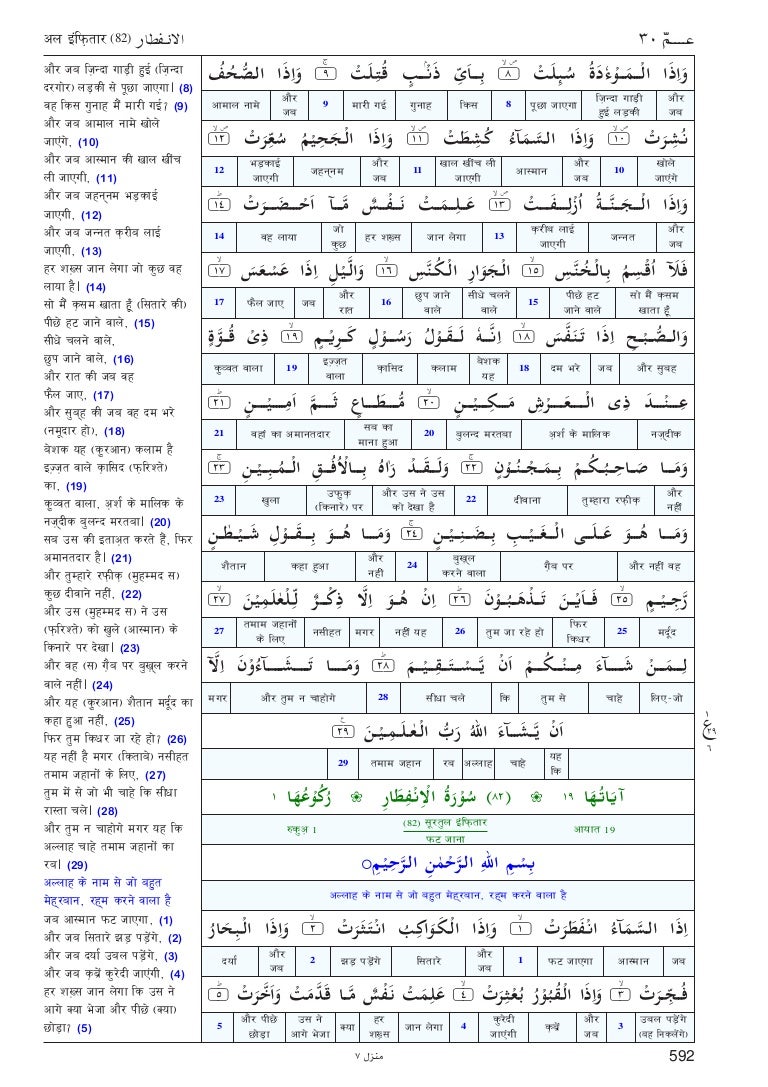 अल इंफ़ितार (82) الانـفـطار
عـــمّ ٣٠
और जब ज़िन्दा गाड़ी हुई (ज़िन्दा
दरगोर) लड़की से पूछा जाएगा। (8)
वह किस गुनाह में मारी गई? (9)
और जब आमाल नामे खोले
जाएंगे, (10)
और जब आस्मान की खाल खींच
ली जाएगी, (11)
और जब जहन्नम भड़काई
जाएगी, (12)
और जब जन्नत क़रीब लाई
जाएगी, (13)
हर शख़्स जान लेगा जो कुछ वह
लाया है। (14)
सो मैं क़सम खाता हूँ (सितारे की)
पीछे हट जाने वाले, (15)
सीधे चलने वाले,
छुप जाने वाले, (16)
और रात की जब वह
फैल जाए, (17)
और सुबह की जब वह दम भरे
(नमूदार हो), (18)
बेशक यह (क़ुरआन) कलाम है
इज़्ज़त वाले क़ासिद (फ़रिश्ते)
का, (19)
क़ुव्वत वाला, अ़र्श के मालिक के
नज़्दीक बुलन्द मरतबा। (20)
सब उस की इताअ़त करते हैं, फिर
अमानतदार है। (21)
और तुम्हारे रफ़ीक़ (मुहम्मद स)
कुछ दीवाने नहीं, (22)
और उस (मुहम्मद स) ने उस
(फ़रिश्ते) को खुले (आस्मान) के
किनारे पर देखा। (23)
और वह (स) ग़ैब पर बुख़्ल करने
वाले नहीं। (24)
और यह (क़ुरआन) शैतान मर्दूद का
कहा हुआ नहीं, (25)
फिर तुम किधर जा रहे हो? (26)
यह नहीं है मगर (किताबे) नसीहत
तमाम जहानों के लिए, (27)
तुम में से जो भी चाहे कि सीधा
रास्ता चले। (28)
और तुम न चाहोगे मगर यह कि
अल्लाह चाहे तमाम जहानों का
रब। (29)
अल्लाह के नाम से जो बहुत
मेहरबान, रहम करने वाला है
जब आस्मान फट जाएगा, (1)
और जब सितारे झड़ पड़ेंगे, (2)
और जब दर्या उबल पड़ेंगे, (3)
और जब क़ब्रें कुरेदी जाएंगी, (4)
हर शख़्स जान लेगा कि उस ने
आगे क्या भेजा और पीछे (क्या)
छोड़ा? (5)
وَاِذَا الْـمَـوْءٗدَةُ سُـىِٕـلَـتْ ۪ۙ ٨ بِـاَيِّ ذَنْـۢبٍ قُـتِـلَـتْ ۚ ٩ وَاِذَا الصُّحُفُ
और जब ज़िन्दा गाड़ी हुई लड़की पूछा जाएगा 8 किस गुनाह मारी गई 9 और जब आमाल नामे
نُشِرَتْ ۪ۙ ١٠ وَاِذَا السَّمَآءُ كُشِطَتْ ۪ۙ ١١ وَاِذَا الْجَحِيْمُ سُعِّرَتْ ۪ۙ ١٢
खोले जाएंगे 10 और जब आस्मान खाल खींच ली जाएगी 11 और जब जहन्नम भड़काई जाएगी 12
وَاِذَا الْـجَـنَّـةُ اُزْلِـفَـتْ ۪ۙ ١٣ عَـلِـمَـتْ نَـفْـسٌ مَّـآ اَحْـضَـرَتْ ؕ ١٤
और जब जन्नत क़रीब लाई जाएगी 13 जान लेगा हर शख़्स जो कुछ वह लाया 14
فَلَآ اُقْسِمُ بِالْخُنَّسِ ۙ ١٥ الْجَوَارِ الْكُنَّسِ ۙ ١٦ وَالَّيْلِ اِذَا عَسْعَسَ ۙ ١٧
सो मैं क़सम खाता हूँ पीछे हट जाने वाले 15 सीधे चलने वाले छुप जाने वाले 16 और रात जब फैल जाए 17
وَالصُّبْحِ اِذَا تَنَفَّسَ ۙ ١٨ اِنَّـهٗ لَـقَوْلُ رَسُوْلٍ كَرِيْـمٍ ۙ ١٩ ذِىْ قُـوَّةٍ
और सुबह जब दम भरे 18 बेशक यह कलाम क़ासिद इज़्ज़त वाला 19 क़ुव्वत वाला
عِـنْـدَ ذِى الْـعَـرْشِ مَـكِـيْـنٍ ۙ ٢٠ مُّـطَـاعٍ ثَـمَّ اَمِـيْـنٍ ؕ ٢١
नज़्दीक अ़र्श के मालिक बुलन्द मरतबा 20 सब का माना हुआ वहां का अमानतदार 21
وَمَـا صَـاحِـبُـكُـمْ بِـمَـجْـنُـوْنٍ ۚ ٢٢ وَلَـقَـدْ رَاٰهُ بِـالْاُفُـقِ الْـمُـبِـيْـنِ ۚ ٢٣
और नहीं तुम्हारा रफ़ीक़ दीवाना 22 और उस ने उस को देखा है उफ़ुक़ (किनारे) पर खुला 23
وَمَـا هُـوَ عَـلَـى الْـغَـيْـبِ بِـضَـنِـيْـنٍ ۚ ٢٤ وَمَـا هُـوَ بِـقَـوْلِ شَـيْـطٰـنٍ
और नहीं वह ग़ैब पर बुख़्ल करने वाला 24 और नहीं कहा हुआ शैतान
رَّجِـيْـمٍ ۙ ٢٥ فَـاَيْـنَ تَـذْهَـبُـوْنَ ؕ ٢٦ اِنْ هُـوَ اِلَّا ذِكْـرٌ لِّـلْـعٰـلَـمِـيْـنَ ۙ ٢٧
मर्दूद 25 फिर किधर तुम जा रहे हो 26 नहीं यह मगर नसीहत तमाम जहानों के लिए 27
لِـمَـنْ شَـآءَ مِـنْـكُـمْ اَنْ يَّـسْـتَـقِـيْـمَ ؕ ٢٨ وَمَـا تَـشَـآءُوْنَ اِلَّآ
लिए-जो चाहे तुम से कि सीधा चले 28 और तुम न चाहोगे मगर
اَنْ يَّـشَـآءَ اللّٰهُ رَبُّ الْـعٰـلَـمِـيْـنَ ۚ ٢٩
यह कि चाहे अल्लाह रब तमाम जहान 29
١
ع
٢٩
٦
آيَاتُـهَا ١٩ ❀ (٨٢) سُوْرَةُ الْاِنْفِطَارِ ❀ رُكُوْعُهَا ١
आयात 19 (82) सूरतुल इंफ़ितार रुकुअ़ 1
फट जाना
بِسْمِ اللّٰهِ الرَّحْمٰنِ الرَّحِيْمِ
अल्लाह के नाम से जो बहुत मेहरबान, रहम करने वाला है
اِذَا السَّمَآءُ انْفَطَرَتْ ۙ ١ وَاِذَا الْكَوَاكِبُ انْتَثَرَتْ ۙ ٢ وَاِذَا الْبِحَارُ
जब आस्मान फट जाएगा 1 और जब सितारे झड़ पड़ेंगे 2 और जब दर्या
فُـجِّـرَتْ ۙ ٣ وَاِذَا الْقُبُوْرُ بُعْثِرَتْ ۙ ٤ عَلِمَتْ نَفْسٌ مَّا قَدَّمَتْ وَاَخَّرَتْ ؕ ٥
उबल पड़ेंगे (बह निकलेंगे) 3 और जब क़ब्रें कुरेदी जाएंगी 4 जान लेगा हर शख़्स क्या उस ने आगे भेजा और पीछे छोड़ा 5
منزل ٧
592